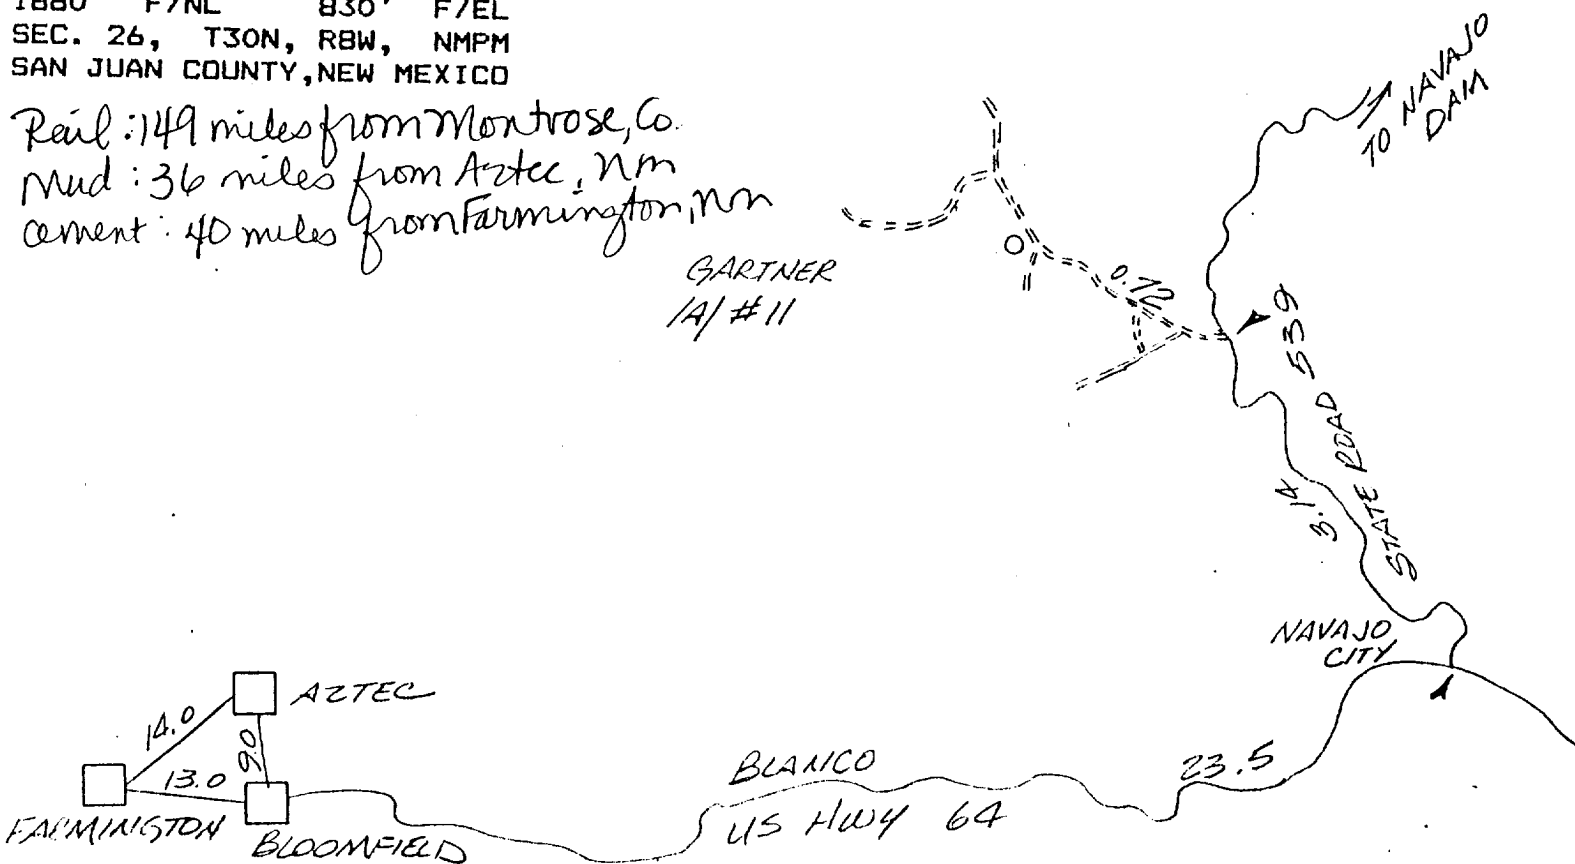 1880' F/NL 830' F/EL
SEC. 26, T30N, R8W, NMPM
SAN JUAN COUNTY, NEW MEXICO
Rail: 149 miles from Montrose, Co.
Mud: 36 miles from Aztec, NM
Cement: 40 miles from Farmington, NM
TO NAVAJO
DAM
GARTNER
/A/ #11
0.72
STATE ROAD 539
3.14
NAVAJO
CITY
AZTEC
14.0
9.0
13.0
FARMINGTON
BLOOMFIELD
BLANCO
US HWY 64
23.5